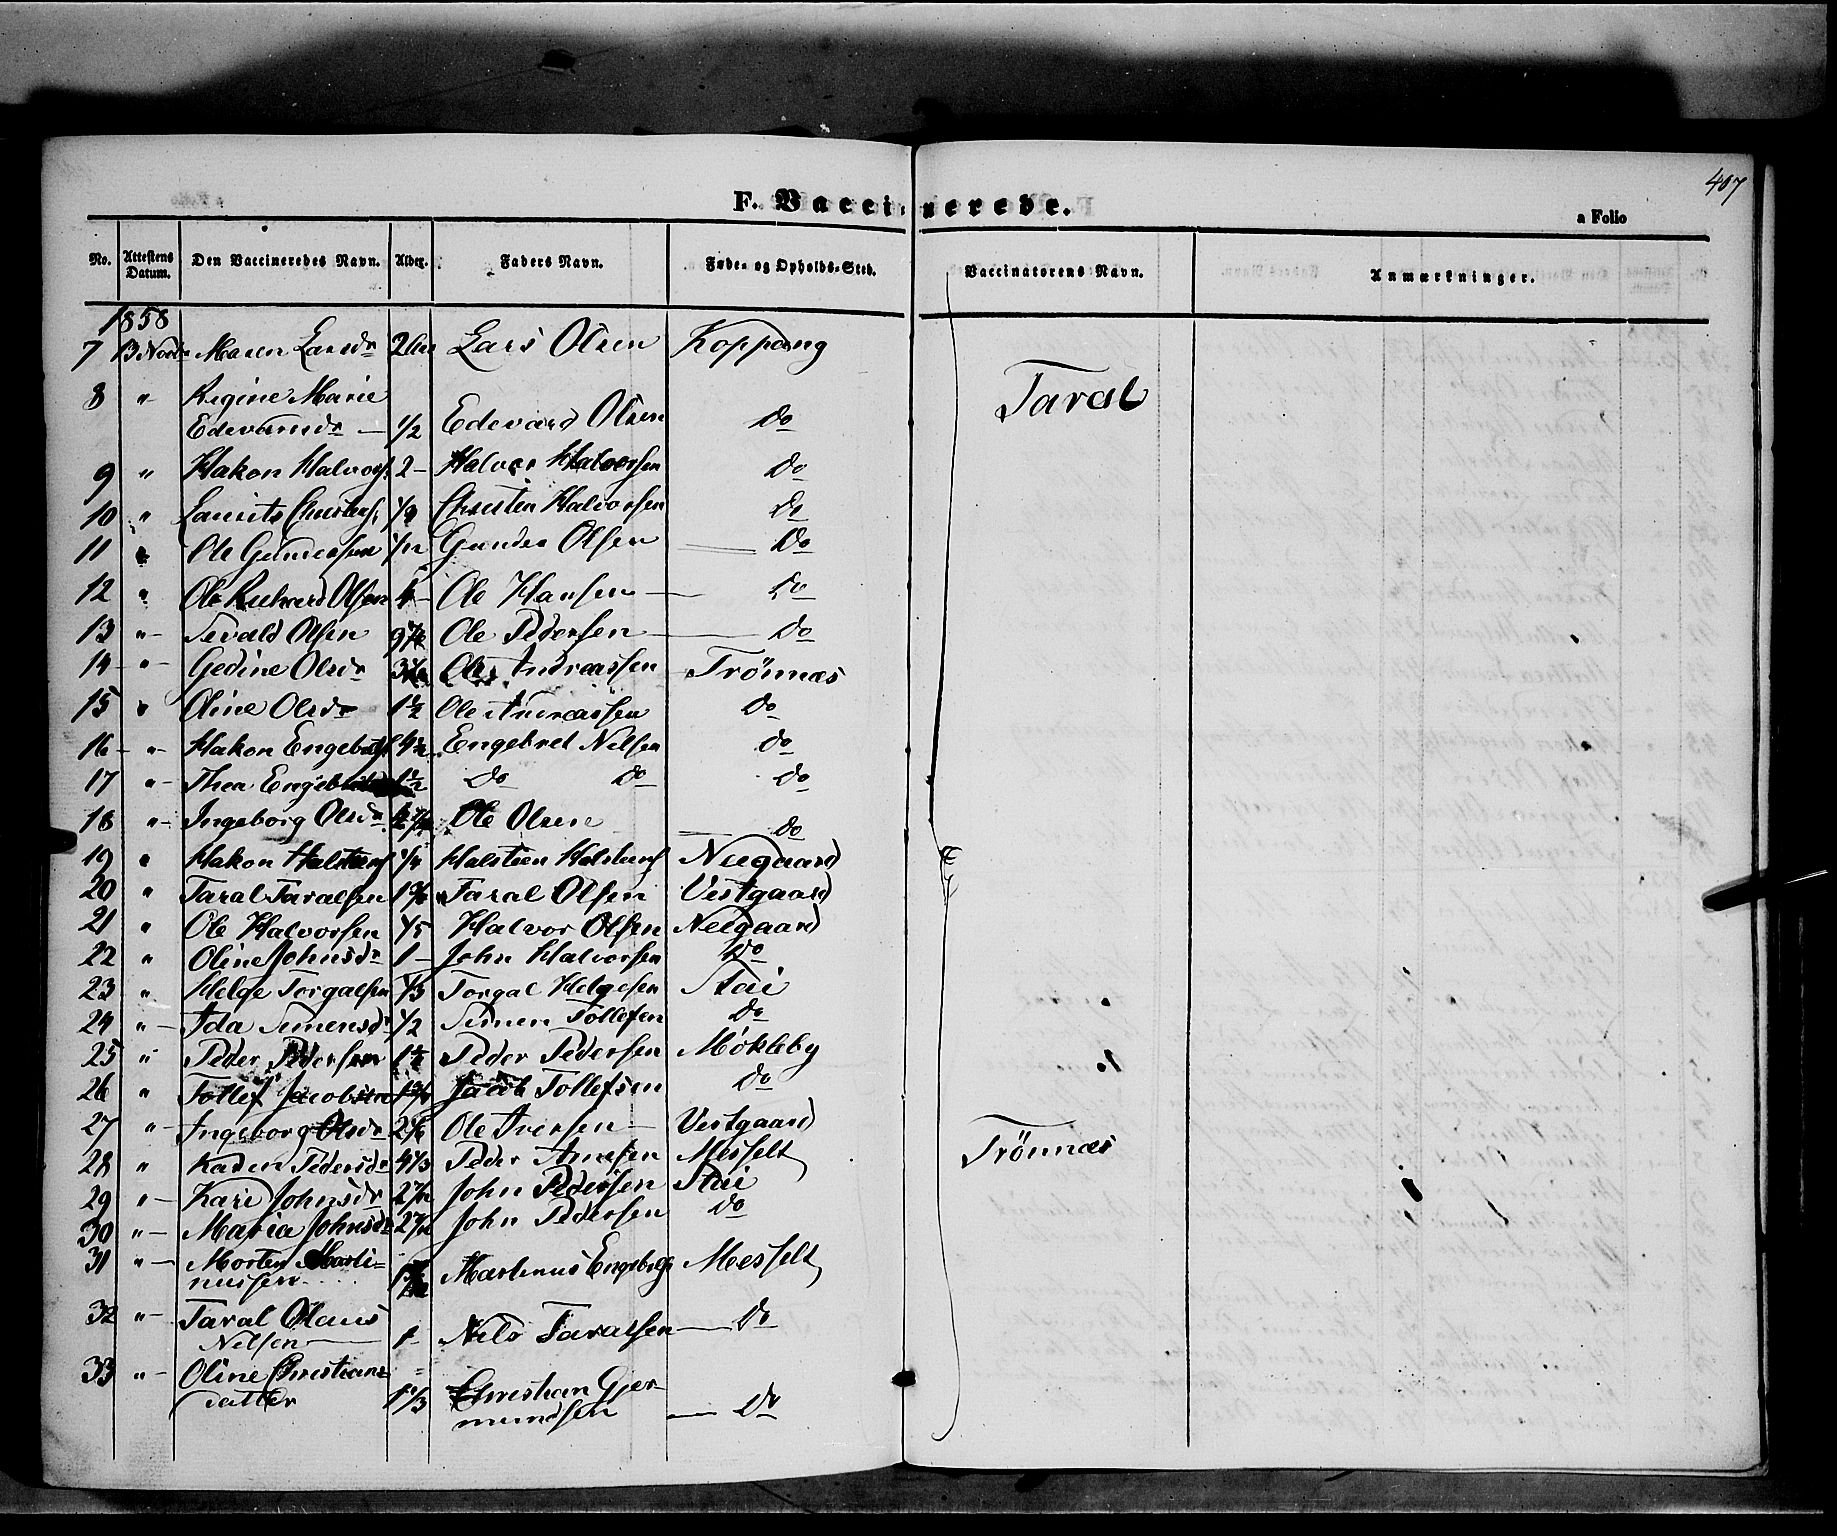 407
F. Vaccinerede.
a Folio
No. Attestens Datum. Den Vaccineredes Navn. Alder. Faders Navn. Føde- og Opholds-Sted. Vaccinatorens Navn. Anmærkninger.
1858
7 13 Novbr Maren Larsdr Lars Olsen Koppang
8 " Regine Marie
Edevardsdr — 1/2 Edevard Olsen Do
Taral
9 " Hakon Halvors. 2 – Halvor Halvorsen Do
10 " Laurits Christens. Christen Halvorsen Do
11 " Ole Gundersen 1/12 Gunder Olsen — Do
12 " Ole Richard Olsen Ole Hansen — Do
13 " – Sevald Olsen Ole Pedersen — Do
14 – " – Gedine Olsdr Ole Andreassen Trönnæs
15 " Oline Olsdr 1 1/2 Ole Andreassen Do
16 – " – Hakon Engebrets. 4 1/2 Engebret Nilsen Do
17 " – Thea 1 1/2 Do Do Do
18 " – Ingeborg Olsdr Ole Olsen — Do
19 " Hakon Halstens. Halsteen Halstens. Neegaard
20 " Taral Taralsen Taral Olsen Vestgaard
21 " Ole Halvorsen 4/5 Halvor Olsen Neegaard
22 " Oline Johnsdr 1 – John Halvorsen Do
23 " Helge Torgalsen Torgal Helgesen Stai
24 " – Ida Simensdr 1/2 Simen Tollefsen Do
25 " Peder Pedersen 1 1/2 Peder Pedersen Møkleby
26 " Tollef Jacobsen Jacob Tollefsen Do
27 " – Ingeborg Olsdr Ole Iversen – Vestgaard
Trönnæs
28 " Karen Pedersdr 4 1/3 Peder Messelt
29 " – Kari Johnsdr 2 7/12 John Pedersen Stai
30 " – Maria Johnsdr 2 7/12 John Pedersen Do
31 " – Morten Marti=
nussen Martinus Engebrets. Messelt
32 " – Taral Olaus
Nilsen — 1 – Nils Taralsen — Do
33 " – Oline Christians=
datter 1 1/3 Christian Gjer=
mundsen — Do